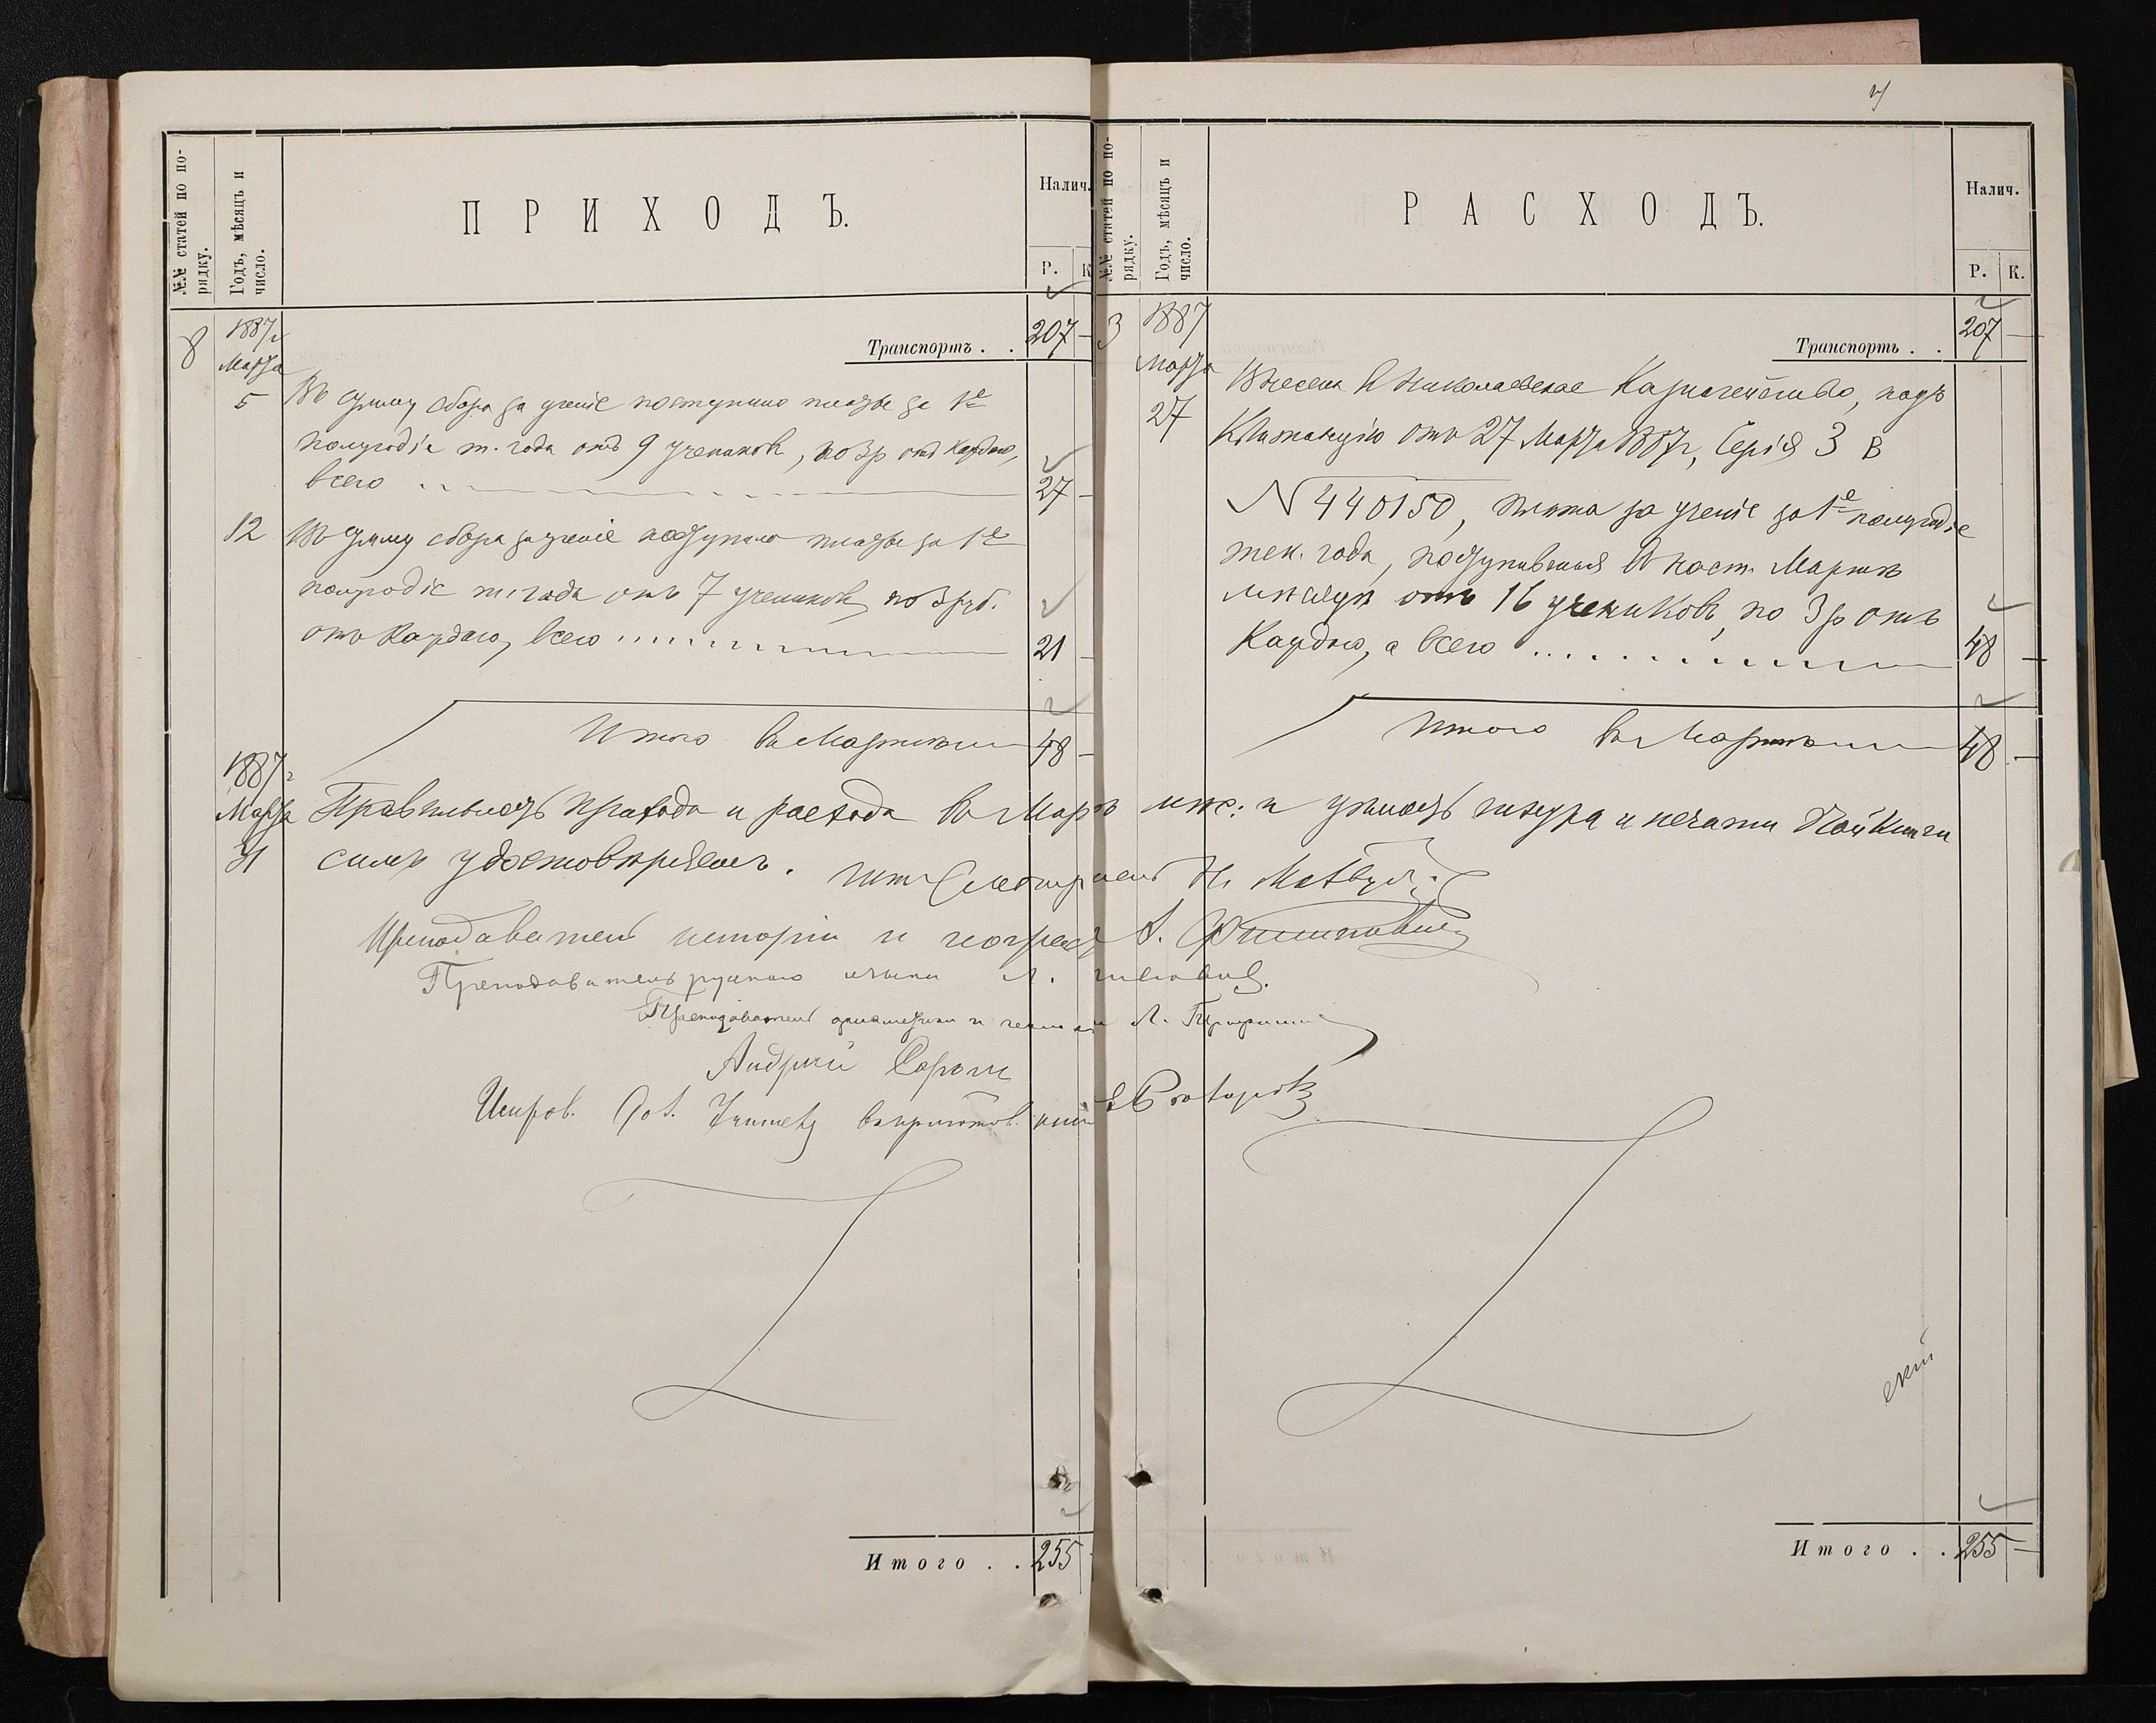 ПРИХОДЪ.
№№ статей по порядку.
Годъ, мѣсяцъ и число.
Налич.
Р. К
8 1887 г
Марта
Транспортъ . . 207 —
5 Въ сумму сбора за ученіе поступило платы за 1е
полугодіе т. года отъ 9 учениковъ, по 3 р отъ каждаго,
всего 27 —
12 Въ сумму сбора за ученіе поступило платы за 1е
полугодіе т. года отъ 7 учениковъ, по 3 руб.
отъ каждаго, всего 21 —
Итого въ Мартѣ 48 —
1887 г
Марта
31
Правильность прихода и расхода въ Мартѣ мѣс: и цѣлость шнура и печати сей книги
симъ удостовѣряемъ. Шт. Смотритель Н.
Преподаватель исторіи и географ. А. Филиповичъ
Преподаватель русскаго языка
Преподаватель ариѳметики и геом
Андрей
Испров. дол. Учителя въ приготов. клас
Итого . . 255
РАСХОДЪ.
№№ статей по порядку.
Годъ, мѣсяцъ и число.
Налич.
Р. К.
3 1887
Марта
27
Транспортъ . . 207 —
Внесена въ Николаевское Казначейство, подъ
Квитанцію отъ 27 Марта 1887 г, Серія З В
N 440150, плата за ученіе за 1е полугодіе
тек. года, поступившая въ наст. Мартѣ
мѣсяцѣ отъ 16 учениковъ, по 3 р отъ
Каждаго, а всего 48 —
Итого въ Мартѣ 48 —
скій
Итого . . 255 —